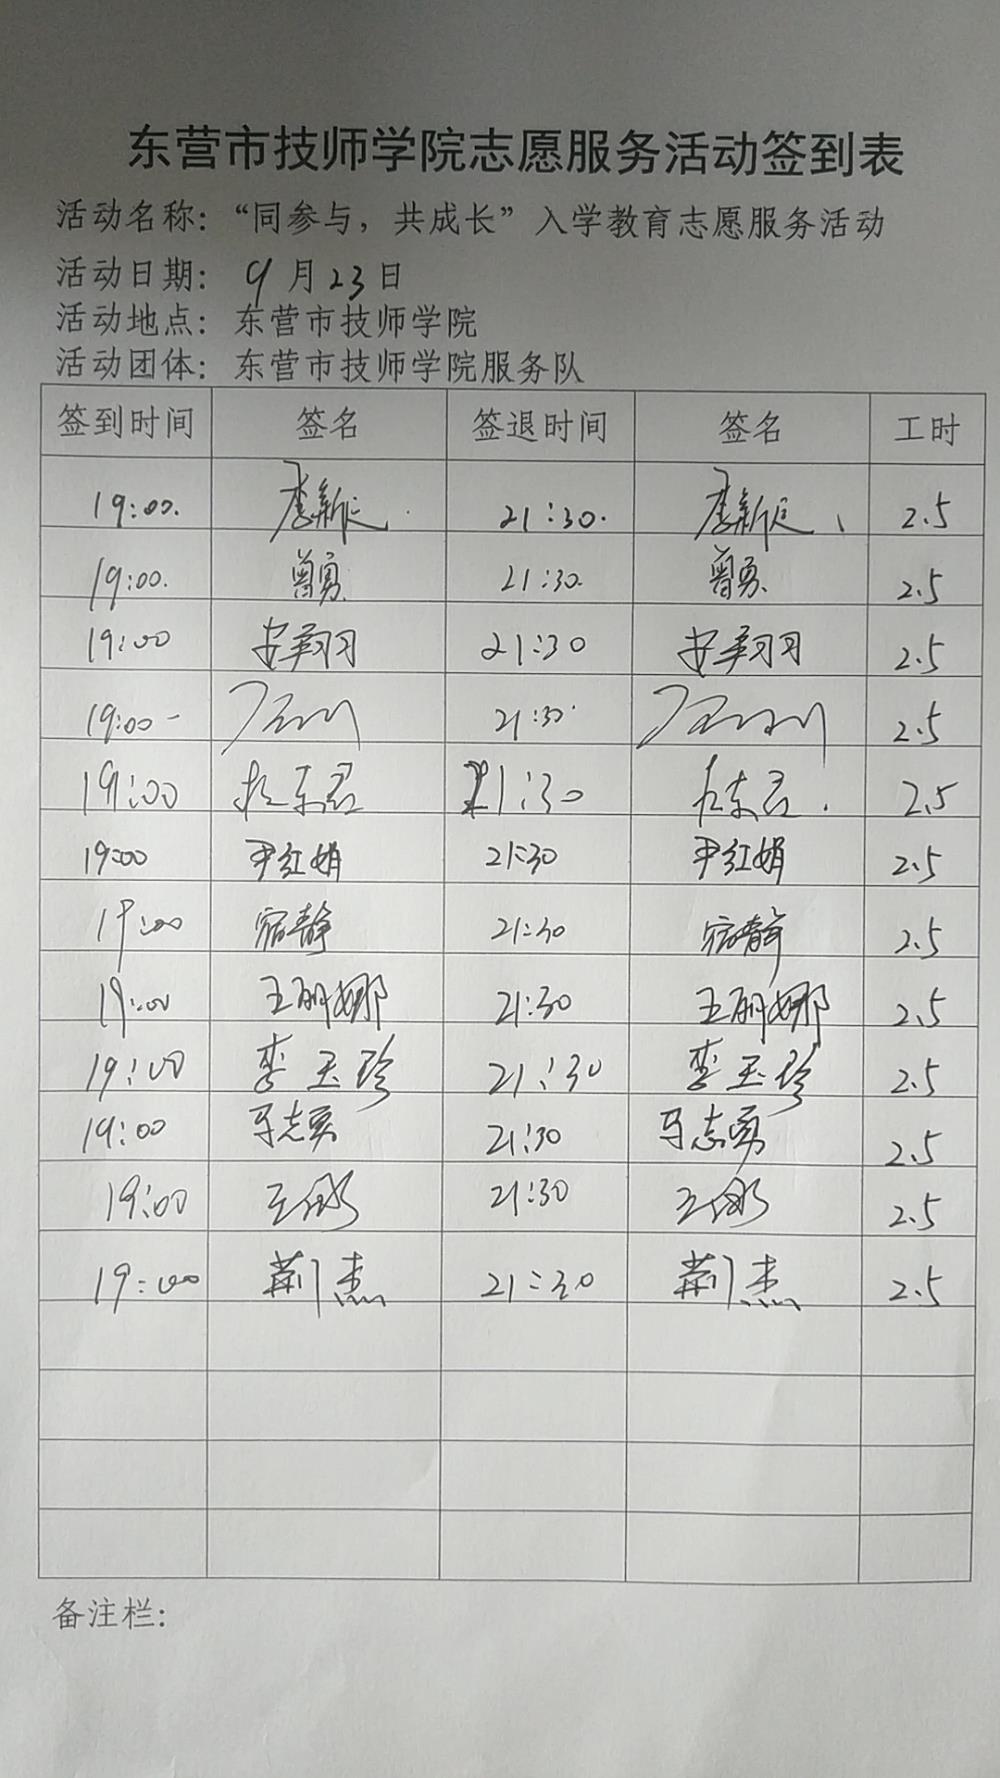 东营市技师学院志愿服务活动签到表
活动名称：“同参与，共成长”入学教育志愿服务活动
活动日期：9月23日
活动地点：东营市技师学院
活动团体：东营市技师学院服务队
签到时间 签名 签退时间 签名 工时
19:00. 李新廷 21:30. 李新廷 2.5
19:00. 曾勇 21:30. 曾勇 2.5
19:00 安翔羽 21:30 安翔羽 2.5
19:00 21:30 2.5
19:00 21:30 2.5
19:00 尹红娟 21:30 尹红娟 2.5
19:00 宿静 21:30 宿静 2.5
19:00 王丽娜 21:30 王丽娜 2.5
19:00 李玉珍 21:30 李玉珍 2.5
19:00 马志勇 21:30 马志勇 2.5
19:00 21:30 2.5
19:00 荆杰 21:30 荆杰 2.5
备注栏：